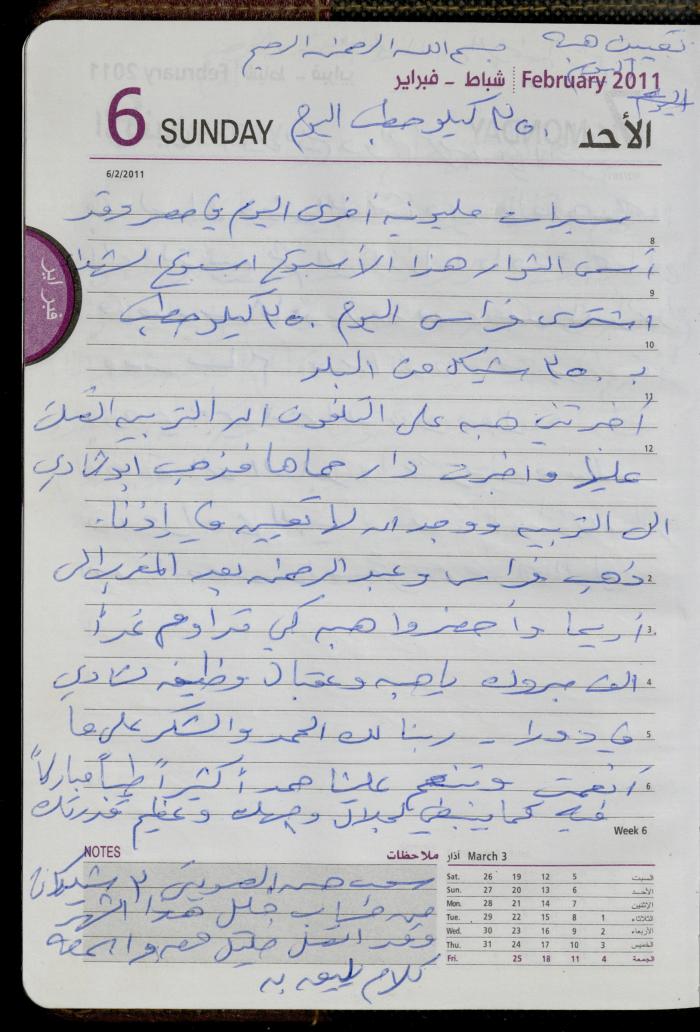 تعيين هبة اليوم
بسم الله الرحمن الرحيم
اليوم
February 2011 شباط - فبراير
6 SUNDAY ٢٥٠ كيلو حطب اليوم الأحد
6/2/2011
مسيرات مليونية أخرى اليوم في مصر وقد
8
أسمى الثوار هذا الأسبوع اسبوع الشهداء
9
فبراير
اشترى فراس اليوم ٢٥٠ كيلو حطب
10
بـ ٣٥٠ شيكل من البلد
11
أخبرتني هبه على التلفون ان التربيه اتصلت
12
عليها واخبرت دار حماها فذهب ابو شادي
الى التربيه ووجد انه لا تعيين في إذنا.
2
ذهب فراس وعبد الرحمن بعد المغرب الى
3
أريحا وأحضروا هبه كي تداوم غداً
4
الف مبروك يا هبه وعقبال وظيفه لشادي
5
في دورا - ربنا لك الحمد والشكر على ما
6
أنعمت وتنعم علينا حمداً كثيراً طيباً مباركاً
فيه كما ينبغي لجلال وجهك وعظيم قدرتك
Week 6
NOTES ملاحظات
شيكل
من حساب خليل هذا الشهر
وقد اتصل خليل
كلام يليق به
March 3 آذار
Sat. 26 19 12 5 السبت
Sun. 27 20 13 6 الأحد
Mon. 28 21 14 7 الإثنين
Tue. 29 22 15 8 1 الثلاثاء
Wed. 30 23 16 9 2 الأربعاء
Thu. 31 24 17 10 3 الخميس
Fri. 25 18 11 4 الجمعة